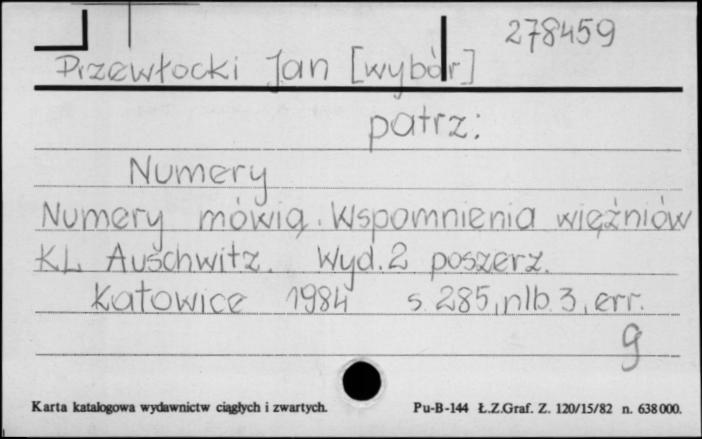 278459
Przewłocki Jan [wybór]
patrz:
Numery
Numery mówią. Wspomnienia więźniów
KL Auschwitz. Wyd. 2 poszerz.
Katowice 1984 s. 285, nlb. 3, err.
g
Karta katalogowa wydawnictw ciągłych i zwartych. Pu-B-144 Ł.Z.Graf. Z. 120/15/82 n. 638000.